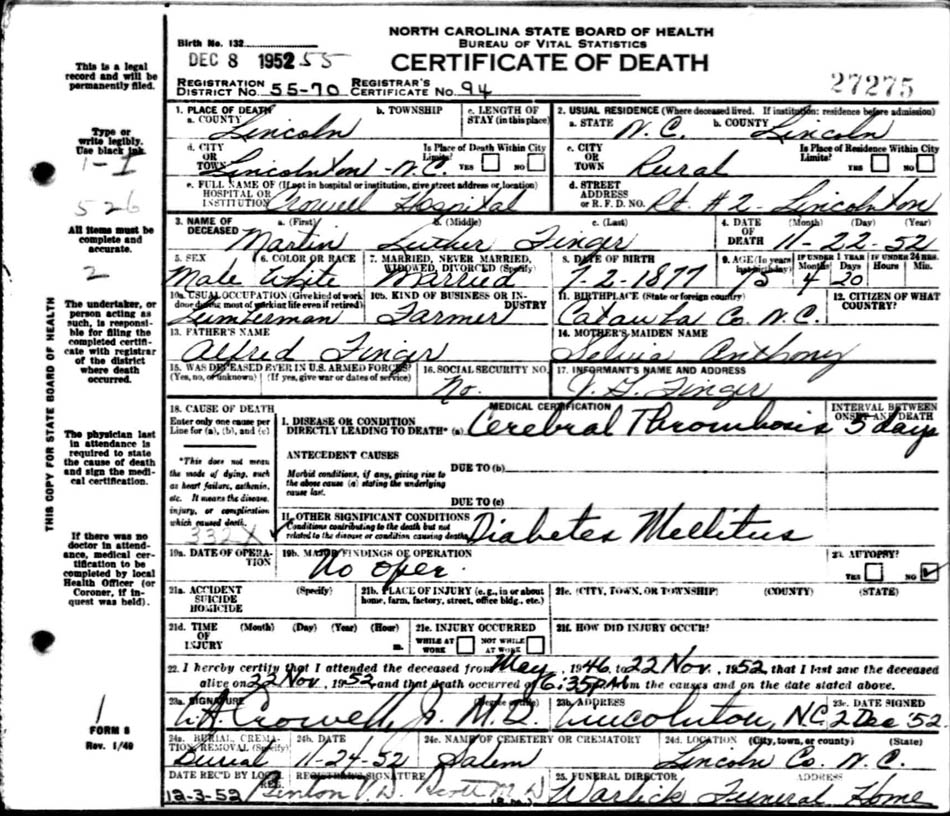 NORTH CAROLINA STATE BOARD OF HEALTH
BUREAU OF VITAL STATISTICS
CERTIFICATE OF DEATH
Birth No. 132
DEC 8 1952 55
27275
REGISTRATION DISTRICT NO. 55-70 REGISTRAR'S CERTIFICATE NO. 94
This is a legal record and will be permanently filed.
Type or write legibly. Use black ink.
1-I
526
All items must be complete and accurate.
2
The undertaker, or person acting as such, is responsible for filing the completed certificate with registrar of the district where death occurred.
The physician last in attendance is required to state the cause of death and sign the medical certification.
If there was no doctor in attendance, medical certification to be completed by local Health Officer (or Coroner, if inquest was held).
1
FORM 8
Rev. 1/49
THIS COPY FOR STATE BOARD OF HEALTH
1. PLACE OF DEATH
a. COUNTY Lincoln
b. TOWNSHIP
c. LENGTH OF STAY (in this place)
2. USUAL RESIDENCE (Where deceased lived. If institution: residence before admission)
a. STATE N.C. b. COUNTY Lincoln
d. CITY OR TOWN Lincolnton - N.C.
Is Place of Death Within City Limits? YES NO
c. CITY OR TOWN Rural
Is Place of Residence Within City Limits? YES NO
e. FULL NAME OF (If not in hospital or institution, give street address or location) HOSPITAL OR INSTITUTION Crowell Hospital
d. STREET ADDRESS OR R.F.D. NO. Rt. #2 - Lincolnton
3. NAME OF DECEASED a. (First) b. (Middle) c. (Last)
Martin Luther Finger
4. DATE OF DEATH (Month) (Day) (Year)
11-22-52
5. SEX Male
6. COLOR OR RACE White
7. MARRIED, NEVER MARRIED, WIDOWED, DIVORCED (Specify) Married
8. DATE OF BIRTH 7-2-1877
9. AGE (In years last birthday) 75
IF UNDER 1 YEAR Months 4 Days 20
IF UNDER 24 HRS. Hours Min.
10a. USUAL OCCUPATION (Give kind of work done during most of working life even if retired) Lumberman
10b. KIND OF BUSINESS OR INDUSTRY Farmer
11. BIRTHPLACE (State or foreign country) Catawba Co. N.C.
12. CITIZEN OF WHAT COUNTRY?
13. FATHER'S NAME Alfred Finger
14. MOTHER'S MAIDEN NAME Anthony
15. WAS DECEASED EVER IN U.S. ARMED FORCES? (Yes, no, or unknown) (If yes, give war or dates of service)
16. SOCIAL SECURITY NO. No.
17. INFORMANT'S NAME AND ADDRESS Finger
18. CAUSE OF DEATH
Enter only one cause per Line for (a), (b), and (c)
MEDICAL CERTIFICATION
INTERVAL BETWEEN ONSET AND DEATH
I. DISEASE OR CONDITION DIRECTLY LEADING TO DEATH* (a) Cerebral Thrombosis 5 days
*This does not mean the mode of dying, such as heart failure, asthenia, etc. It means the disease, injury, or complication which caused death.
332X
ANTECEDENT CAUSES
Morbid conditions, if any, giving rise to the above cause (a) stating the underlying cause last.
DUE TO (b)
DUE TO (c)
II. OTHER SIGNIFICANT CONDITIONS
Conditions contributing to the death but not related to the disease or condition causing death. Diabetes Mellitus
19a. DATE OF OPERATION
19b. MAJOR FINDINGS OF OPERATION No oper.
20. AUTOPSY? YES NO
21a. ACCIDENT SUICIDE HOMICIDE (Specify)
21b. PLACE OF INJURY (e.g., in or about home, farm, factory, street, office bldg., etc.)
21c. (CITY, TOWN, OR TOWNSHIP) (COUNTY) (STATE)
21d. TIME OF INJURY (Month) (Day) (Year) (Hour) m.
21e. INJURY OCCURRED WHILE AT WORK NOT WHILE AT WORK
21f. HOW DID INJURY OCCUR?
22. I hereby certify that I attended the deceased from May, 1946, to 22 Nov., 1952, that I last saw the deceased
alive on 22 Nov, 1952, and that death occurred at 6:35 P m., from the causes and on the date stated above.
23a. SIGNATURE (Degree or title) Crowell, Jr. M.D.
23b. ADDRESS Lincolnton, N.C.
23c. DATE SIGNED 2 Dec '52
24a. BURIAL, CREMATION, REMOVAL (Specify) Burial
24b. DATE 11-24-52
24c. NAME OF CEMETERY OR CREMATORY Salem
24d. LOCATION (City, town, or county) (State) Lincoln Co. N.C.
DATE REC'D BY LOCAL REG. 12-3-52
REGISTRAR'S SIGNATURE Scott M.D.
25. FUNERAL DIRECTOR ADDRESS Warlick Funeral Home